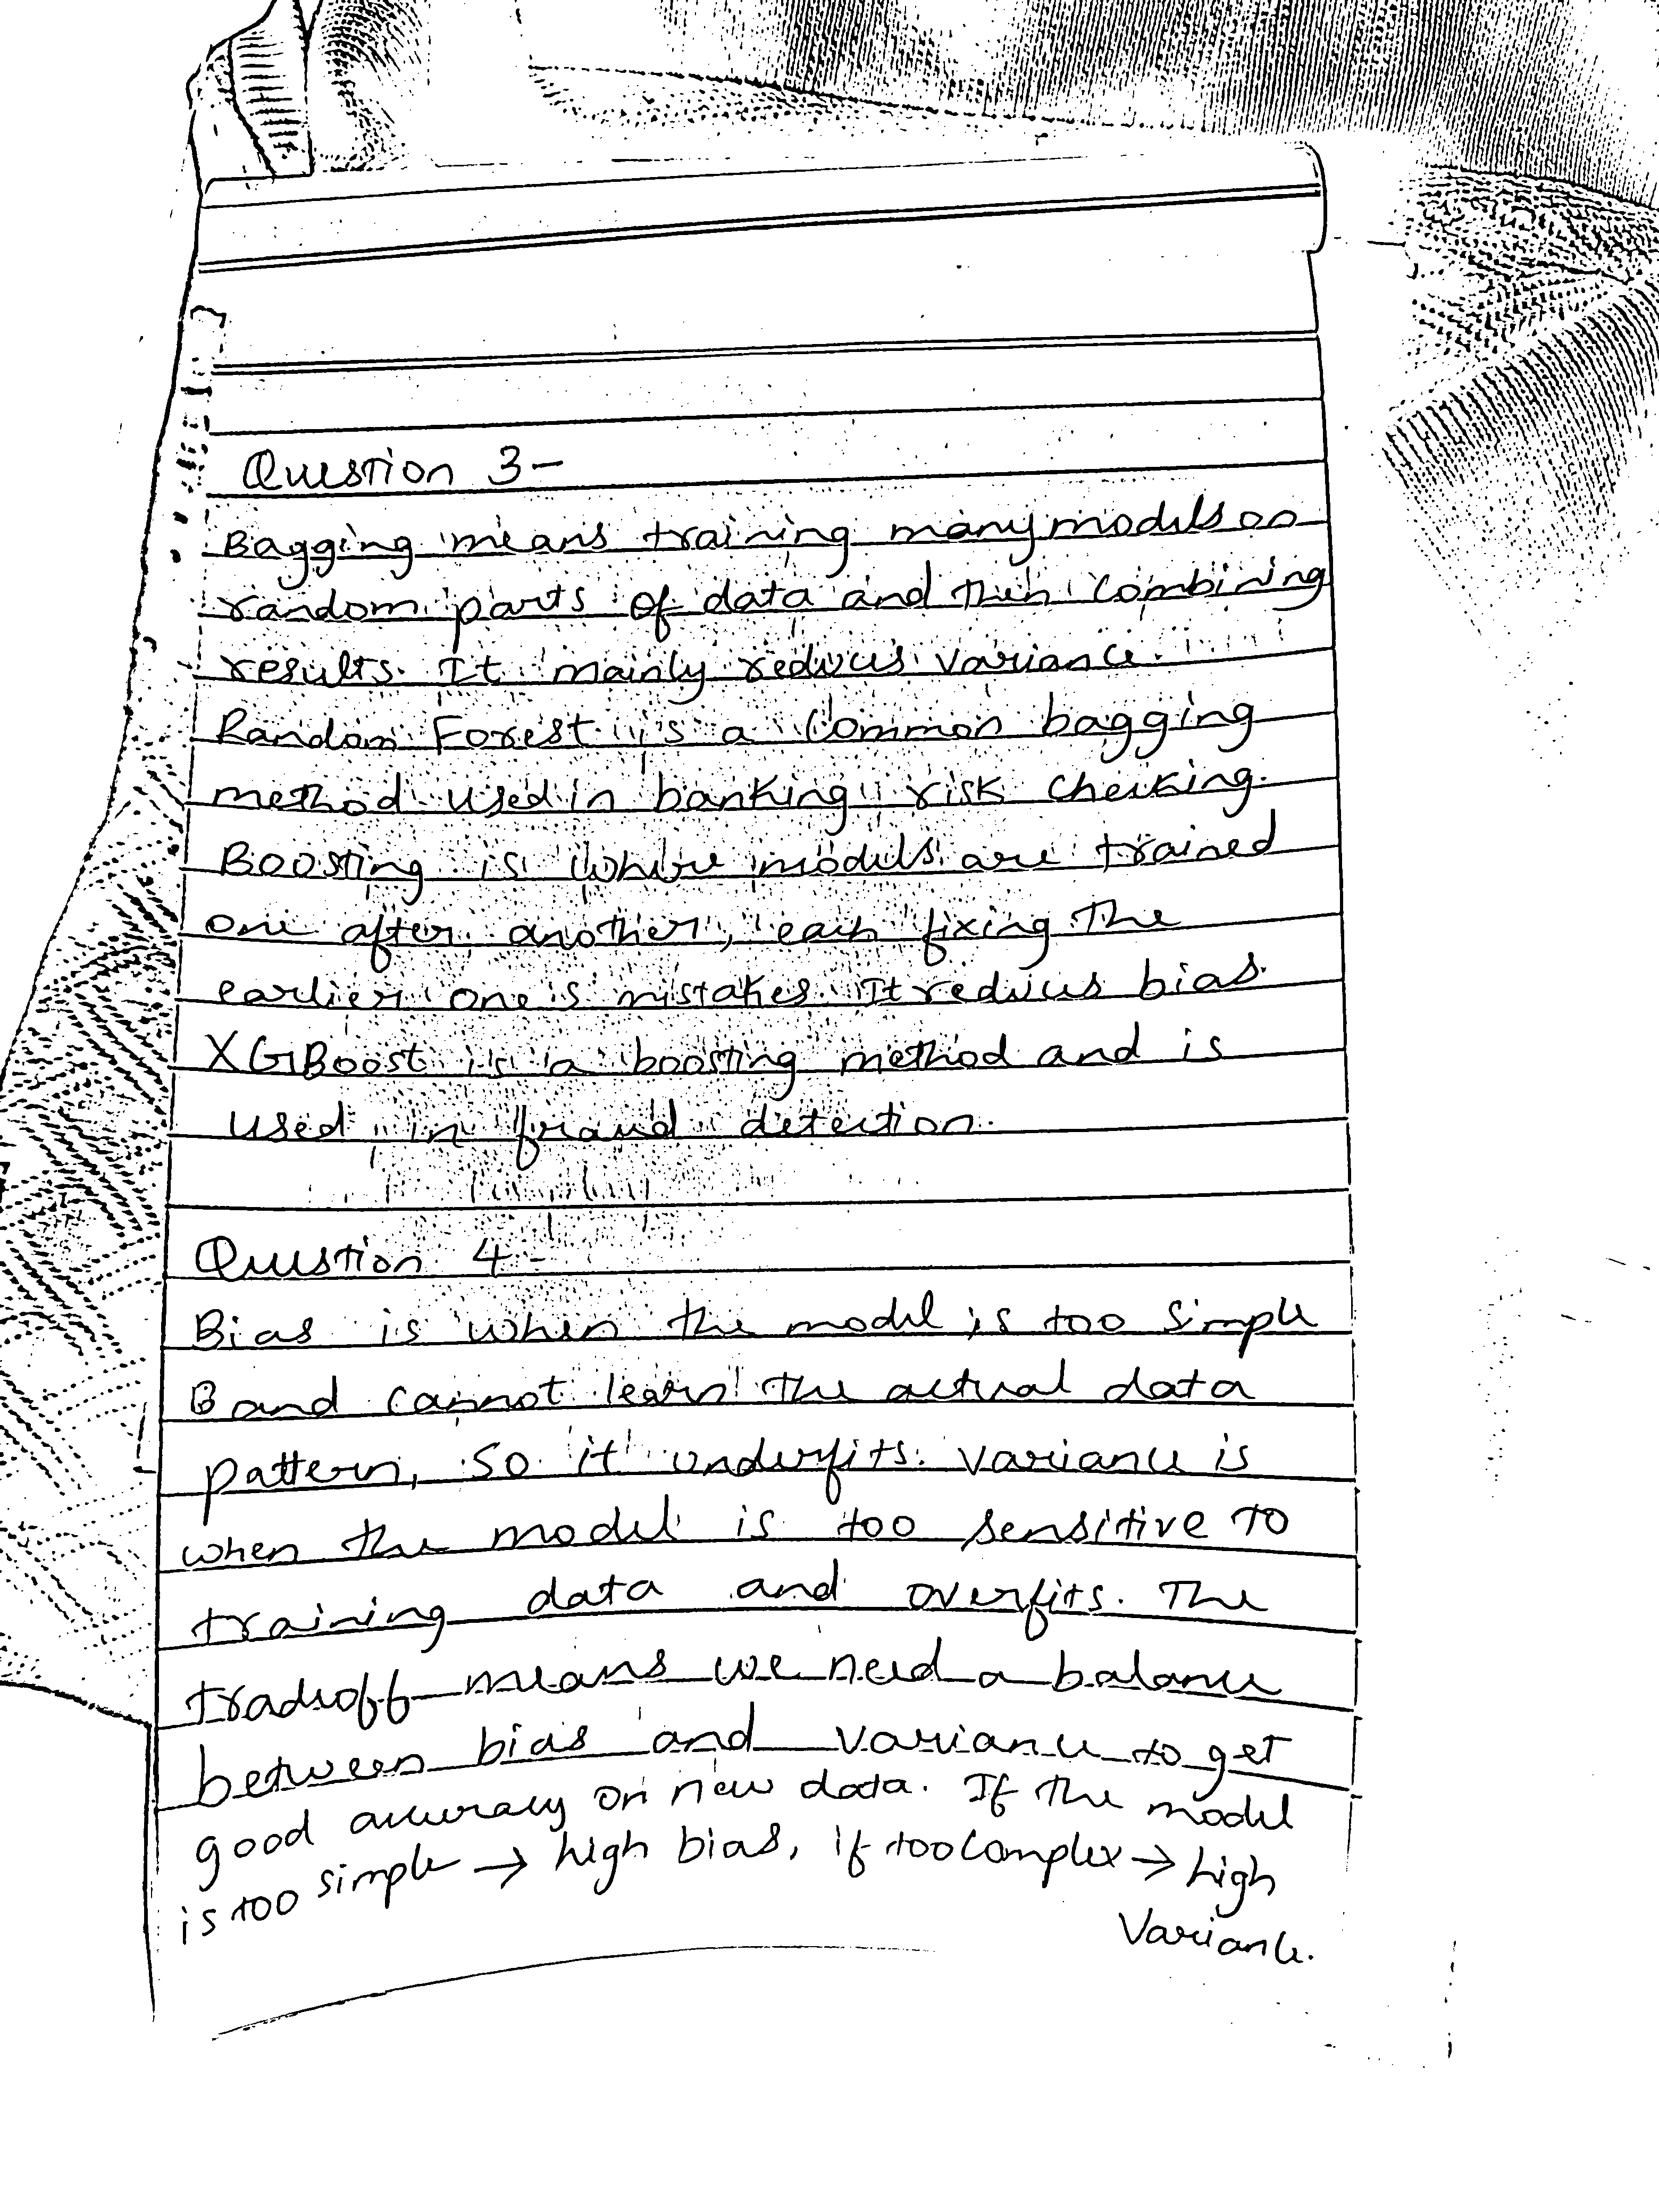 Question 3-
Bagging means training many models on
random parts of data and then combining
results. It mainly reduces variance.
Random Forest is a common bagging
method used in banking risk checking.
Boosting is where models are trained
one after another, each fixing the
earlier one's mistakes. It reduces bias.
XGBoost is a boosting method and is
used in fraud detection.
Question 4-
Bias is when the model is too simple
B and cannot learn the actual data
pattern, so it underfits. Variance is
when the model is too sensitive to
training data and overfits. The
tradeoff means we need a balance
between bias and variance to get
good accuracy on new data. If the model
is too simple → high bias, if too complex → high
Variance.